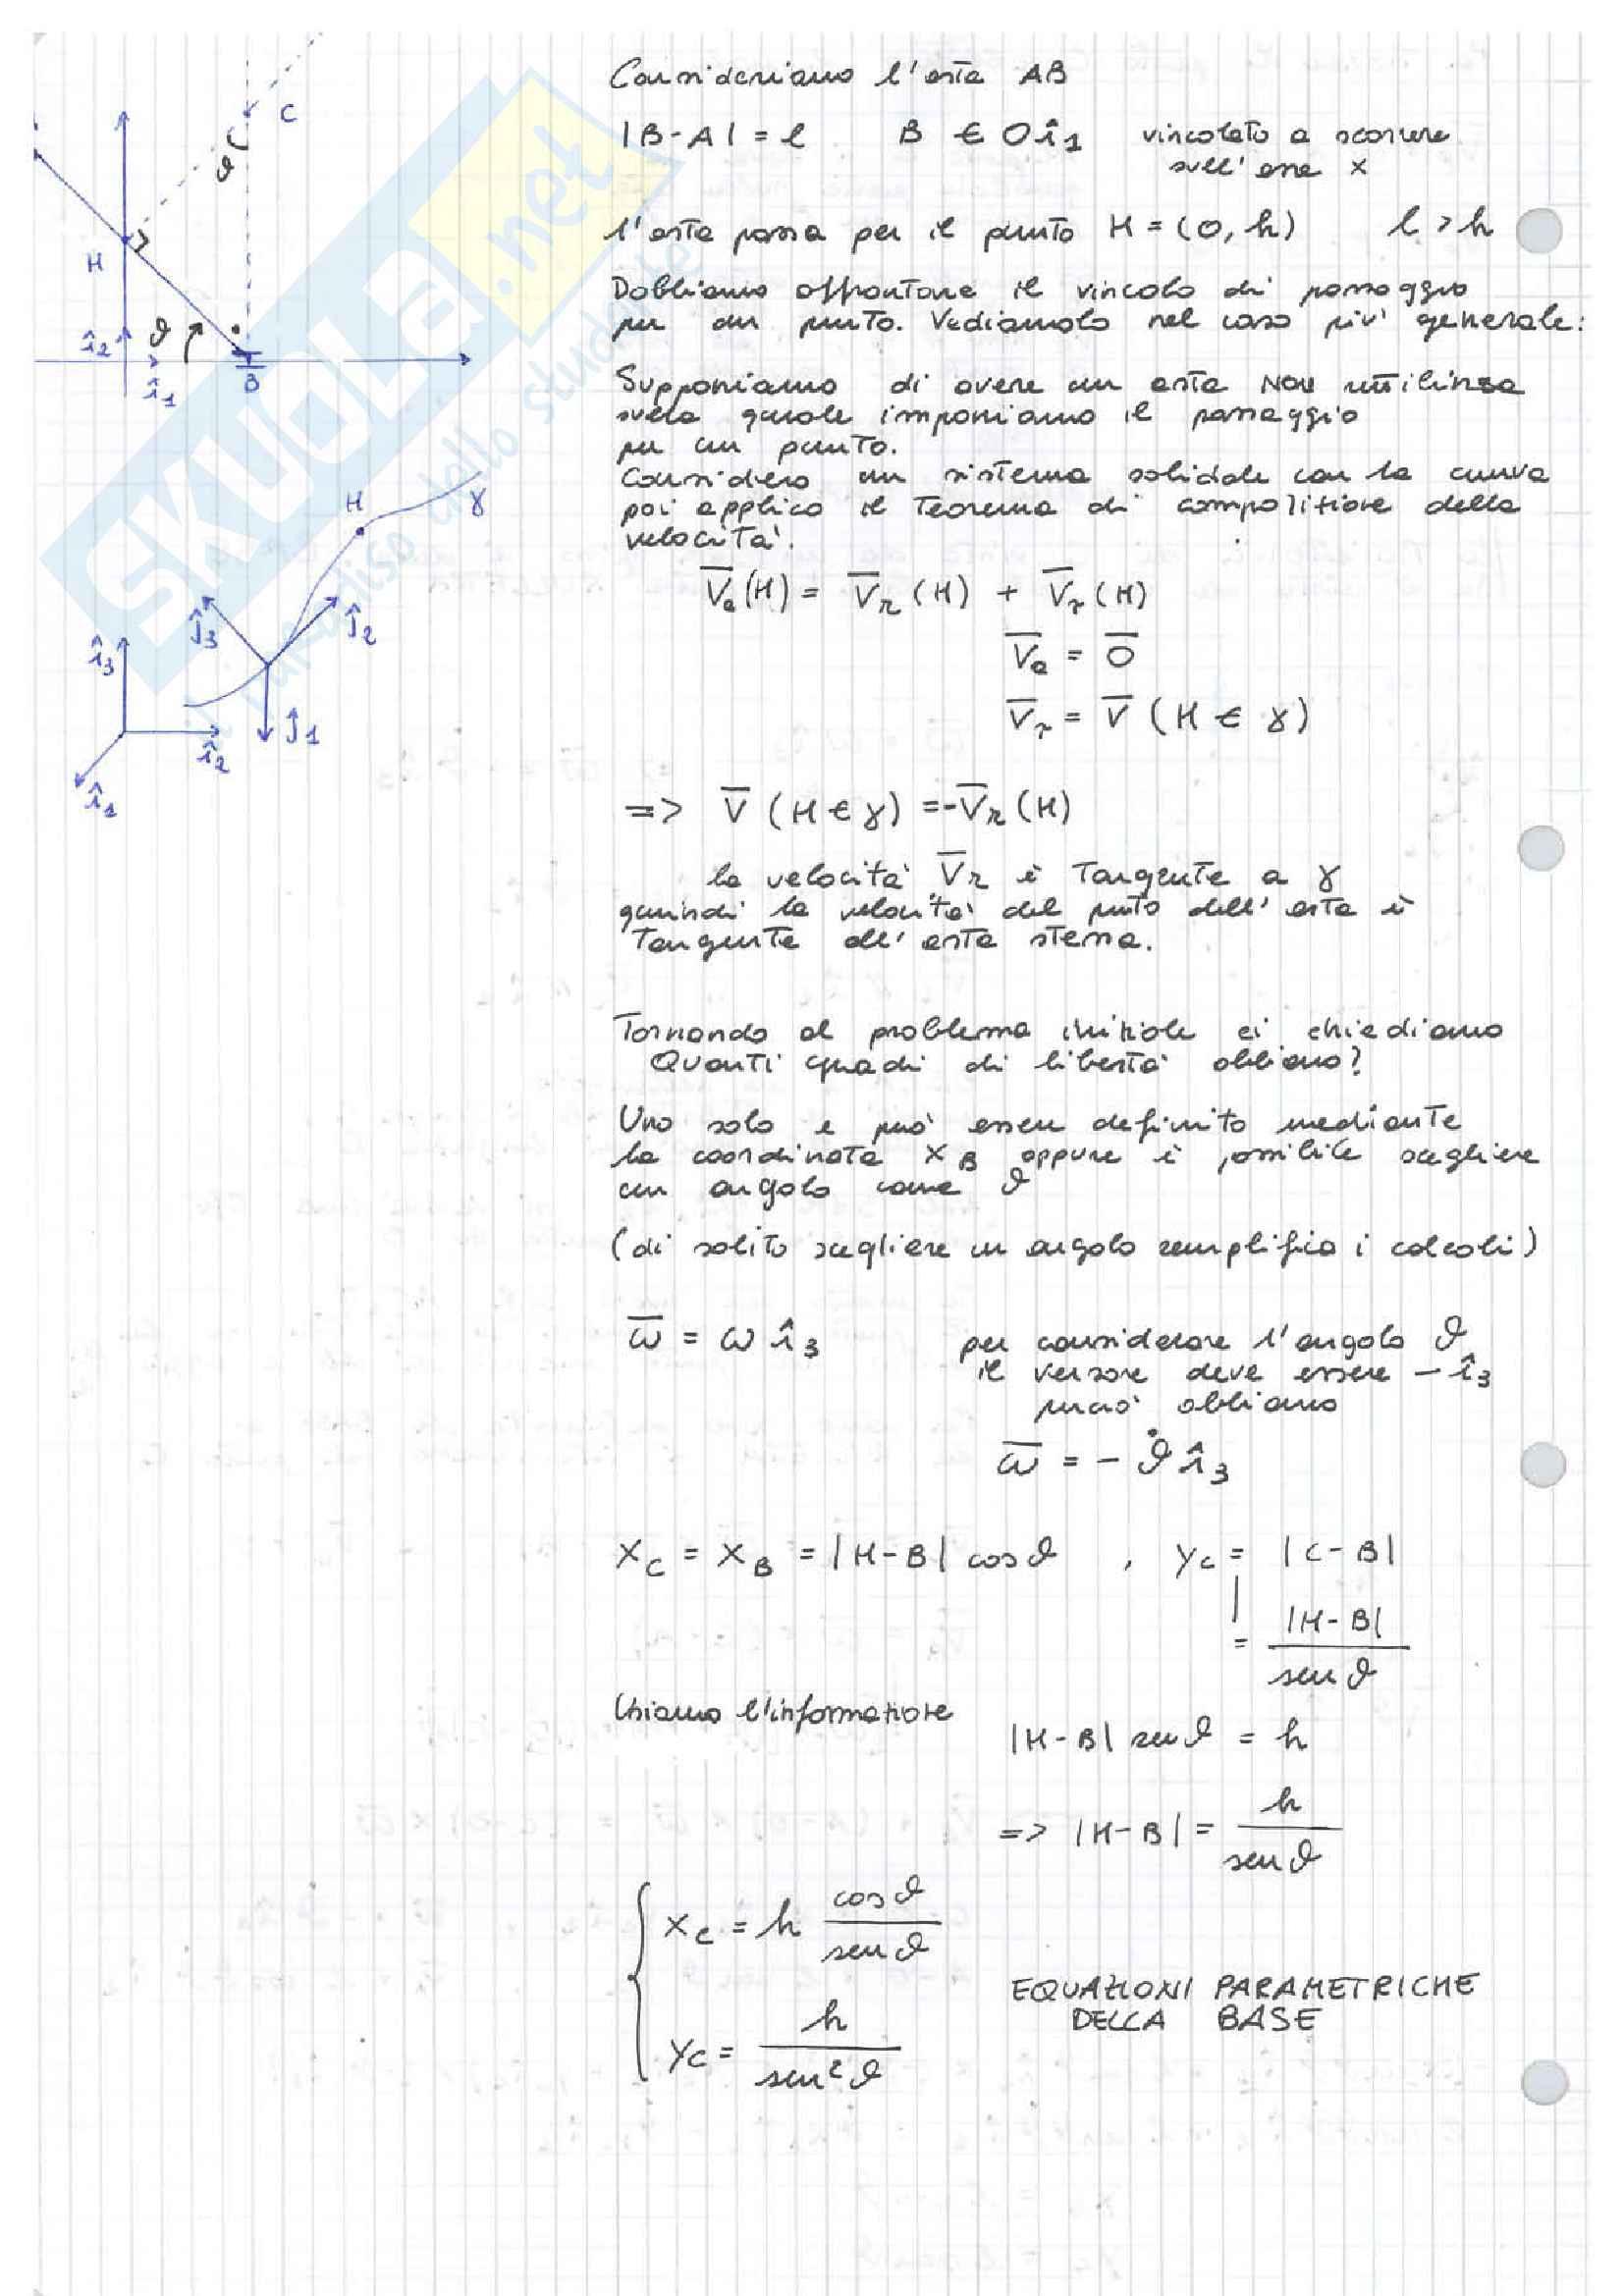 Consideriamo l'asta AB
|B-A| = l   B ∈ Oî1   vincolato a scorrere
sull'asse x
l'asta passa per il punto H = (0, h)   l > h
Dobbiamo affrontare il vincolo di passaggio
per un punto. Vediamolo nel caso più generale:
Supponiamo di avere un asta NON rettilinea
sulla quale imponiamo il passaggio
per un punto.
Considero un sistema solidale con la curva
poi applico il teorema di composizione della
velocità.
V̅a(H) = V̅r(H) + V̅τ(H)
V̅a = 0̅
V̅τ = V̅ (H ∈ γ)
=> V̅ (H ∈ γ) = -V̅r(H)
la velocità V̅r è tangente a γ
quindi la velocità del punto dell'asta è
tangente all'asta stessa.
Tornando al problema iniziale ci chiediamo
Quanti gradi di libertà abbiamo?
Uno solo e può essere definito mediante
la coordinata xB oppure è possibile scegliere
un angolo come ϑ
(di solito scegliere un angolo semplifica i calcoli)
ω̅ = ω î3   per considerare l'angolo ϑ
il versore deve essere - î3
perciò abbiamo
ω̅ = - ϑ̇ î3
xC = xB = |H-B| cosϑ , yC = |C-B|
= |H-B| / senϑ
Usiamo l'informazione
|H-B| senϑ = h
=> |H-B| = h / senϑ
xC = h cosϑ / senϑ
EQUAZIONI PARAMETRICHE
DELLA BASE
yC = h / sen²ϑ
C
ϑ
H
ϑ
î2
î1
B
H
γ
ĵ3
ĵ2
î3
ĵ1
î2
î1
SKUOLA.net
il paradiso dello studente